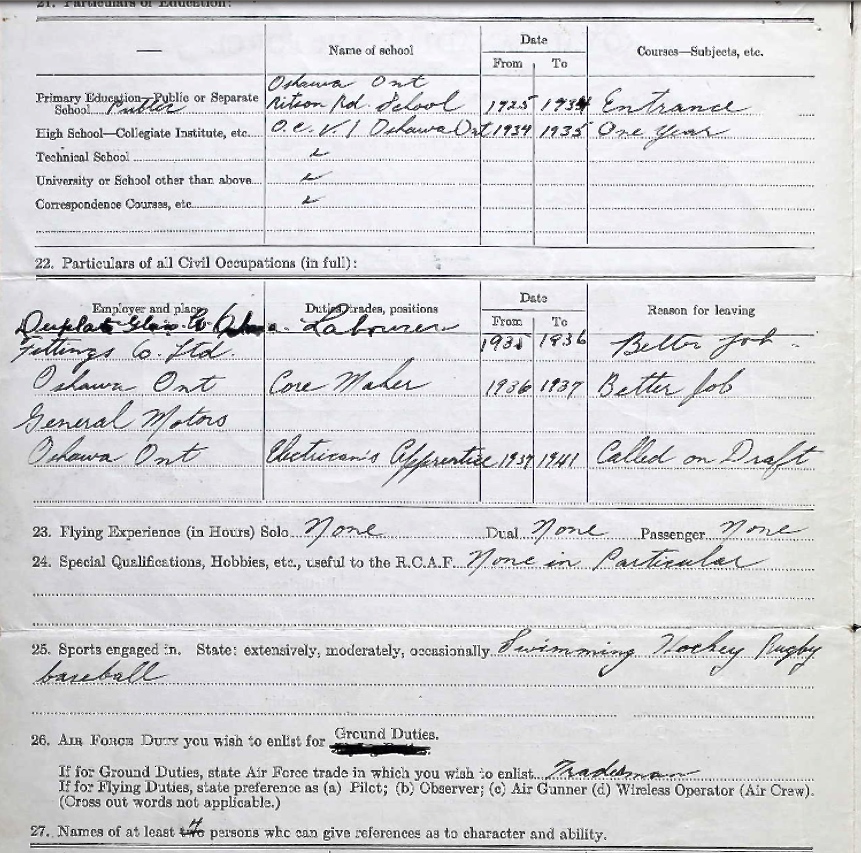 21. Particulars of Education:
Name of school
Date
From To
Courses—Subjects, etc.
Oshawa Ont
Primary Education—Public or Separate
School Public Ritson Rd. School 1925 1934 Entrance
High School—Collegiate Institute, etc. O.C.V.I Oshawa Ont 1934 1935 One Year
Technical School
University or School other than above
Correspondence Courses, etc.
22. Particulars of all Civil Occupations (in full):
Employer and place Duties, trades, positions Date Reason for leaving
From To
Duplate Glass Co Labourer
Fittings Co. Ltd. 1935 1936 Better Job
Oshawa Ont Core Maker 1936 1937 Better Job
General Motors
Oshawa Ont Electrican's Apprentice 1937 1941 Called on Draft
23. Flying Experience (in Hours) Solo None Dual None Passenger None
24. Special Qualifications, Hobbies, etc., useful to the R.C.A.F. None in Particular
25. Sports engaged in. State: extensively, moderately, occasionally Swimming Hockey Rugby
baseball
26. AIR FORCE DUTY you wish to enlist for Ground Duties.
If for Ground Duties, state Air Force trade in which you wish to enlist Tradesman
If for Flying Duties, state preference as (a) Pilot; (b) Observer; (c) Air Gunner (d) Wireless Operator (Air Crew).
(Cross out words not applicable.)
27. Names of at least two persons who can give references as to character and ability.